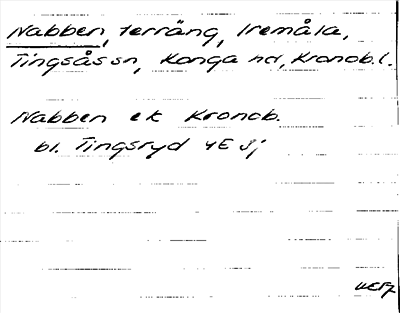 Nabben, terräng, Iremåla,
Tingsås sn, Konga hd, Kronob. l.
Nabben ek Kronob.
bl. Tingsryd 4E 3j